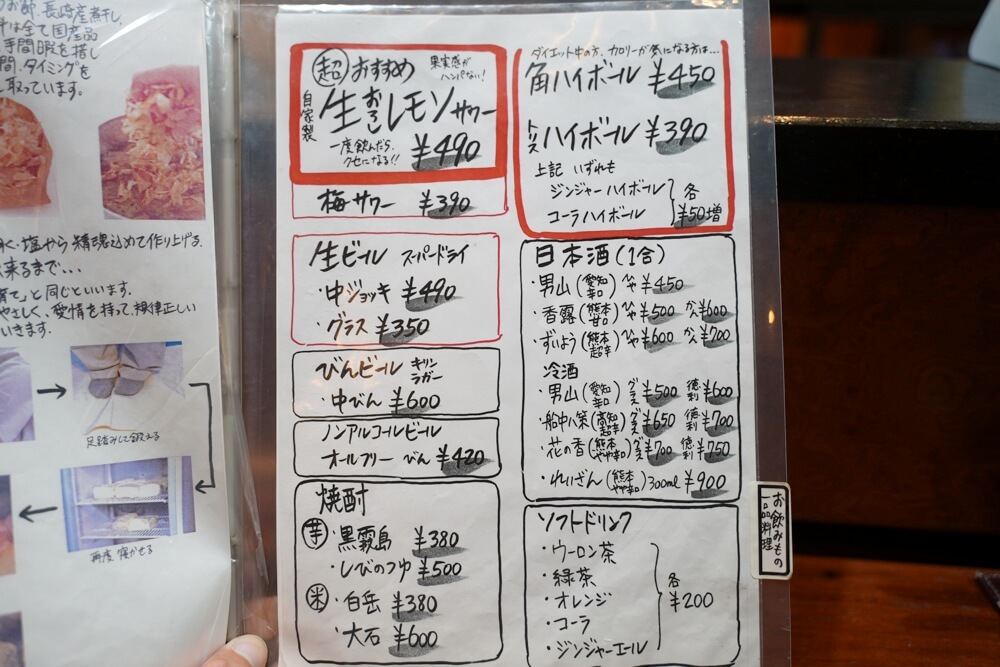 長崎産煮干し
は全て国産品
手間日

間、タイミングを
取っています。
塩から 精魂込めて作り上げる。
来るまで…
育て」と同じといいます。
やさしく、愛情を持って、規律正しい
いきます。
足踏みして鍛える
再度 寝かせる
超 おすすめ
果実感が
ハンパない!
自家製
生おろしレモンサワー
一度飲んだら、
クセになる!!
¥490
梅サワー ¥390
生ビール スーパードライ
・中ジョッキ ¥490
・グラス ¥350
びんビール キリン
ラガー
・中びん ¥600
ノンアルコールビール
オールフリー びん ¥420
焼酎
芋 ・黒霧島 ¥380
・しびのつゆ ¥500
米 ・白岳 ¥380
・大石 ¥600
ダイエット中の方、カロリーが気になる方は…
角ハイボール ¥450
トリスハイボール ¥390
上記 いずれも
ジンジャーハイボール
コーラハイボール
各
¥50増
日本酒(1合)
・男山(愛知 辛口)ひや ¥450
・香露(熊本 甘口)ひや ¥500 かん ¥600
・ずいよう(熊本 超辛)ひや ¥600 かん ¥700
冷酒
・男山(愛知 辛口)グラス ¥500 徳利 ¥600
・船中八策(高知 超辛)グラス ¥650 徳利 ¥700
・花の香(熊本 やや辛)グラス ¥700 徳利 ¥750
・れいざん(熊本 やや辛口)300ml ¥900
ソフトドリンク
・ウーロン茶
・緑茶
・オレンジ
・コーラ
・ジンジャーエール
各
¥200
お飲みもの
一品料理